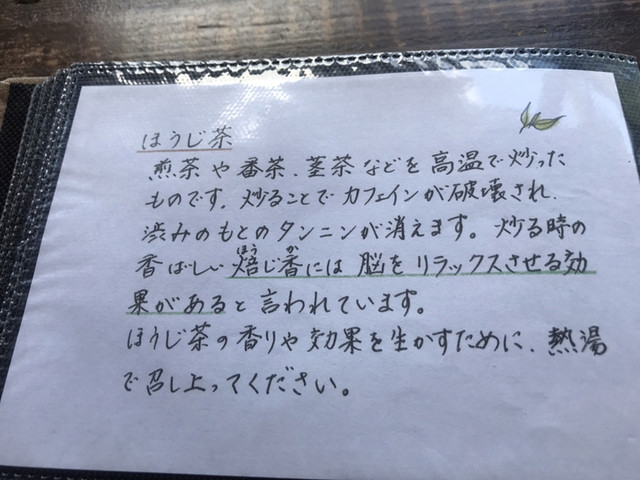 ほうじ茶
煎茶や番茶、茎茶などを高温で炒った
ものです。炒ることでカフェインが破壊され、
渋みのもとのタンニンが消えます。炒る時の
香ばしい焙じ香には脳をリラックスさせる効
ほう か
果があると言われています。
ほうじ茶の香りや効果を生かすために、熱湯
で召し上ってください。